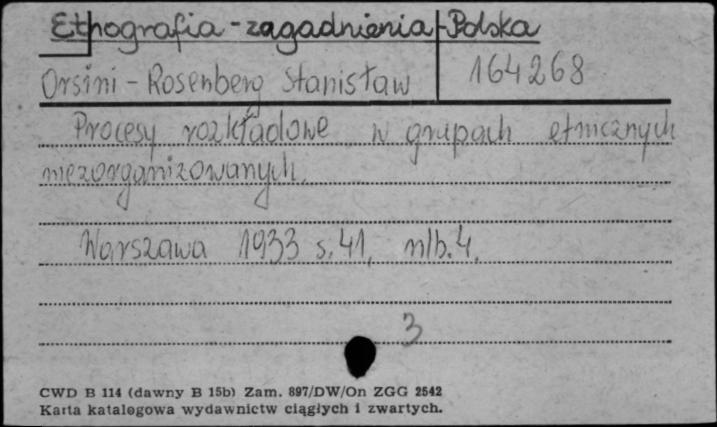 Etnografia - zagadnienia - Polska
Orsini - Rosenberg Stanisław 164268
Procesy rozkładowe w grupach etnicznych
niezorganizowanych.
Warszawa 1933 s. 41, nlb. 4.
3
CWD B 114 (dawny B 15b) Zam. 897/DW/On ZGG 2542
Karta katalogowa wydawnictw ciągłych i zwartych.